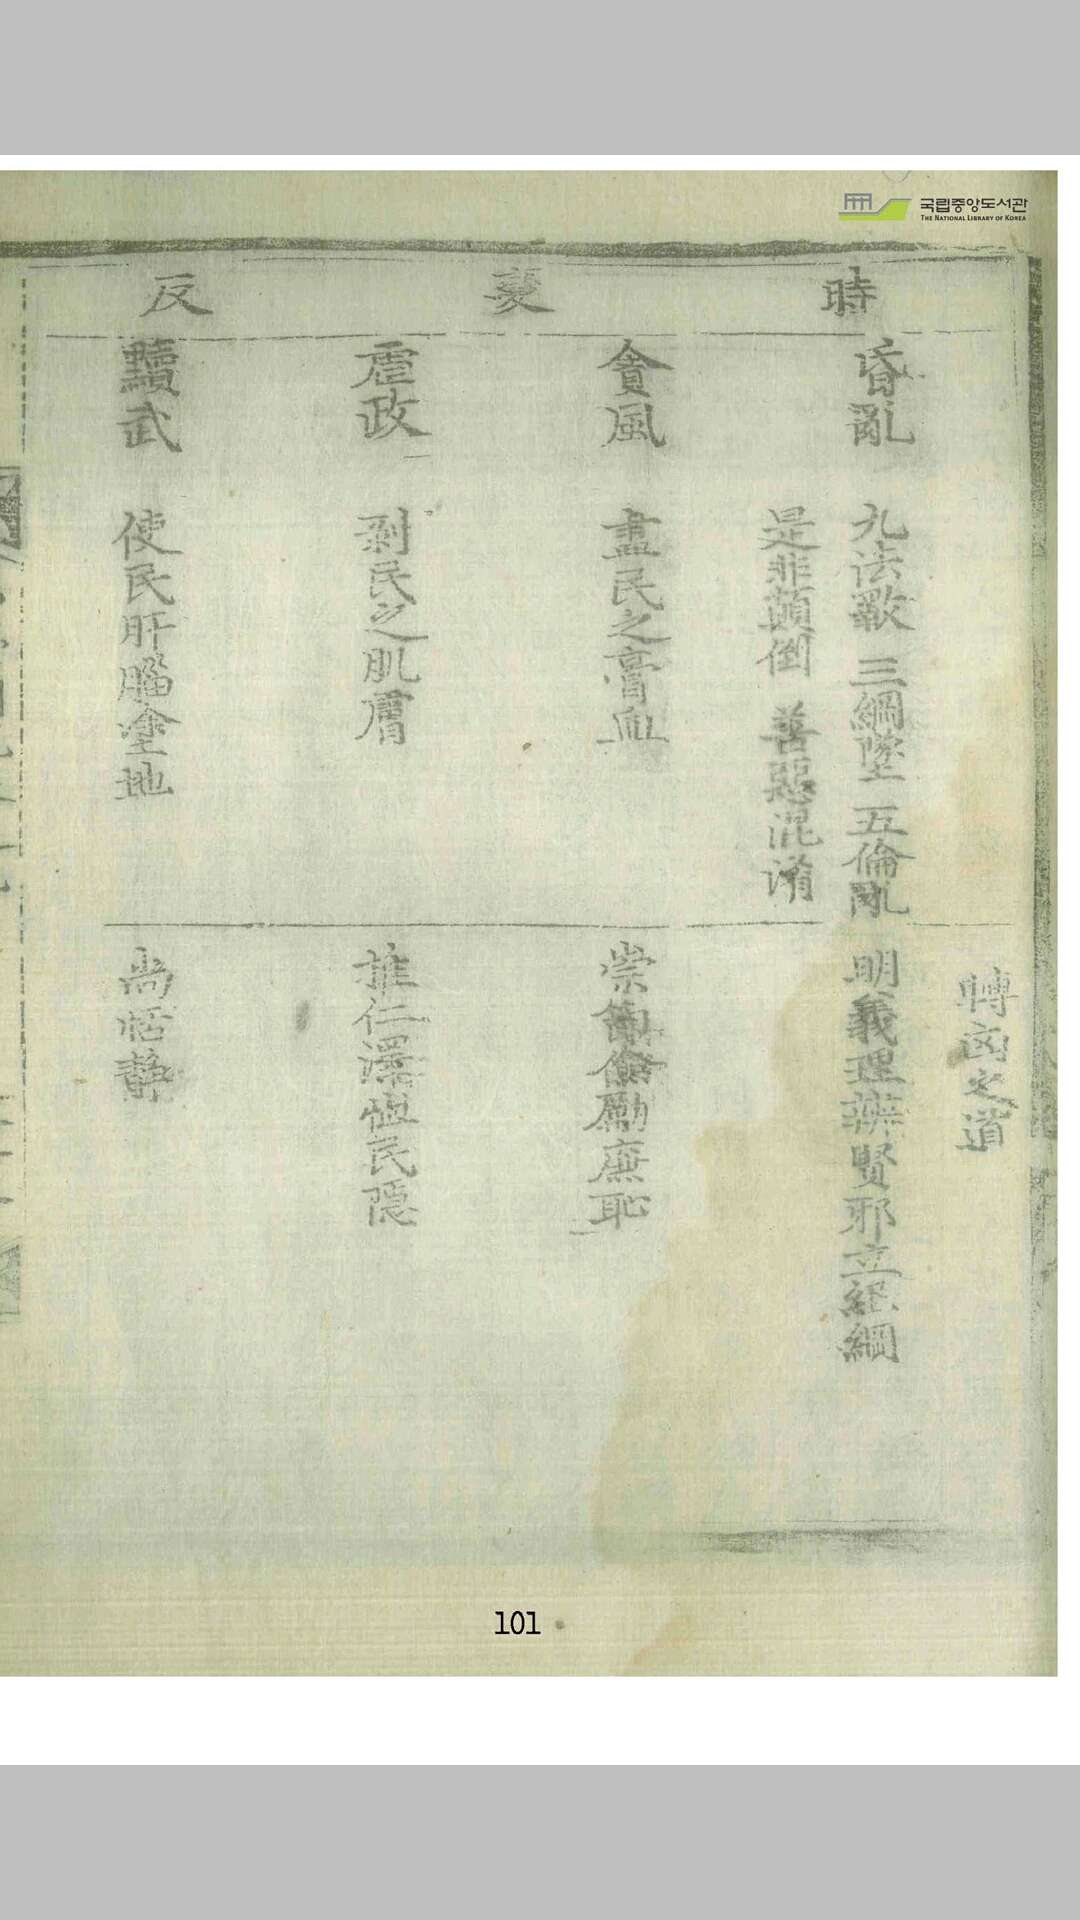 국립중앙도서관
THE NATIONAL LIBRARY OF KOREA
時變反
轉凶之道
昏亂 九法斁 三綱墜 五倫亂
是非顚倒 善惡混淆
明義理辨賢邪立紀綱
貪風 盡民之膏血
崇節儉勵廉恥
虐政 剥民之肌膚
推仁澤恤民隱
黷武 使民肝腦塗地
尚恬靜
101